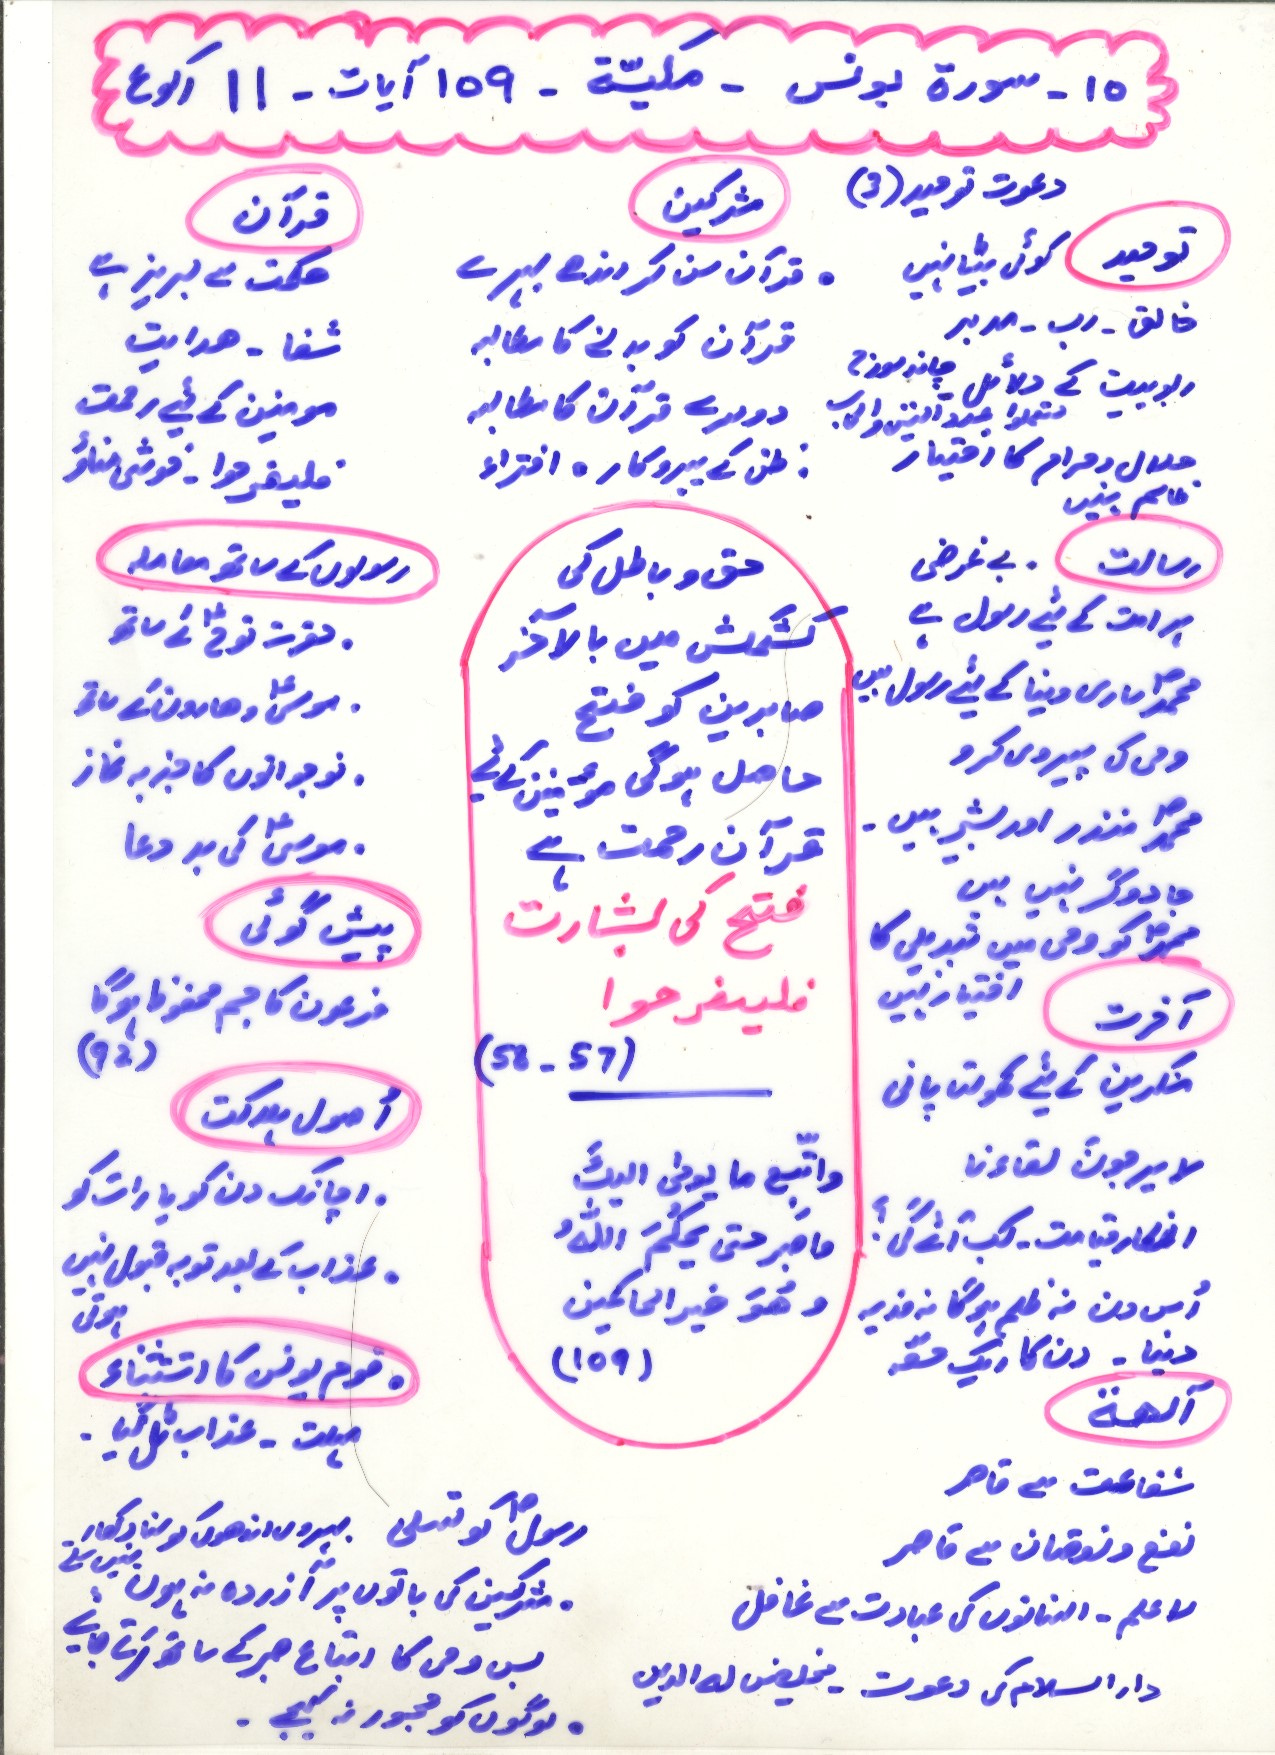 10 - سورۃ یونس - مکیّۃ - 109 آیات - 11 رکوع
دعوت توحید (3)
توحید
کوئی بیٹا نہیں
خالق - رب - مدبر
ربوبیت کے دلائل - چاند سورج
لتعلموا عدد السنین والحساب
حلال و حرام کا اختیار
نہیں
رسالت
. بے غرضی
ہر امت کے لئے رسول ہے
محمدؐ ساری دنیا کے لئے رسول ہیں
وحی کی پیروی کرو
محمدؐ منذر اور بشیر ہیں -
جادوگر نہیں ہیں
محمدؐ کو وحی میں تبدیلی کا
اختیار نہیں
آخرت
منکرین کے لئے کھولتا پانی
لا یرجون لقاءنا
انکار قیامت - کب آئے گی؟
اُس دن نہ ظلم ہوگا نہ فدیہ
دنیا - دن کا ایک حصّہ
آلھۃ
شفاعت سے قاصر
نفع و نقصان سے قاصر
لا علم - انسانوں کی عبادت سے غافل
دار السلام کی دعوت - مخلصین لہ الدین
مشرکین
. قرآن سن کر اندھے بہرے
قرآن کو بدلنے کا مطالبہ
دوسرے قرآن کا مطالبہ
: ظن کے پیروکار . افتراء
حق و باطل کی
کشمکش میں بالآخر
صابرین کو فتح
حاصل ہوگی مؤمنین کے لئے
قرآن رحمت ہے
فتح کی بشارت
فلیفرحوا
(57 - 58)
واتّبع ما یوحٰی الیکَ
واصبر حتی یحکُمَ اللہُ
و ھُوَ خیر الحاکمین
(109)
قرآن
حکمت سے لبریز ہے
شفا - ھدایت
مومنین کے لئے رحمت
فلیفرحوا - خوشی مناؤ
رسولوں کے ساتھ معاملہ
. حضرت نوحؑ کے ساتھ
. موسیٰؑ و ھارون کے ساتھ
. نوجوانوں کا جذبہ نماز
. موسیٰؑ کی بد دعا
پیش گوئی
فرعون کا جسم محفوظ ہوگا
(92)
اُصول ہلاکت
. اچانک دن کو یا رات کو
. عذاب کے بعد توبہ قبول نہیں
ہوتی
. قوم یونس کا استثناء
مہلت - عذاب ٹل گیا -
رسولؐ کو تسلی بہروں اندھوں کو سنا دکھا
نہیں سکتے
. مشرکین کی باتوں پر آزردہ نہ ہوں
بس وحی کا اتباع صبر کے ساتھ کرتے جایئے
. لوگوں کو مجبور نہ کیجیے -